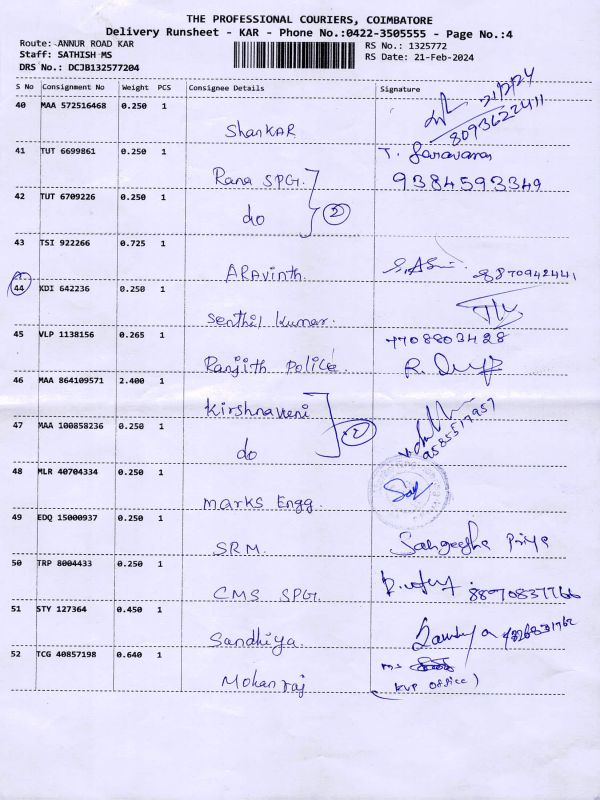 THE PROFESSIONAL COURIERS, COIMBATORE
Delivery Runsheet - KAR - Phone No.:0422-3505555 - Page No.:4
Route: ANNUR ROAD KAR
RS No.: 1325772
Staff: SATHISH MS
RS Date: 21-Feb-2024
DRS No.: DCJB132577204
S No Consignment No Weight PCS Consignee Details Signature
40 MAA 572516468 0.250 1
21/2/24
8093622411
ShanKAR
41 TUT 6699861 0.250 1
T. Saravana
Rana SPG.
9384593349
42 TUT 6709226 0.250 1
do
2
43 TSI 922266 0.725 1
ARavinth
8870942441
44 KDI 642236 0.250 1
Senthil Kumar.
45 VLP 1138156 0.265 1
7708803428
Ranjith Police
46 MAA 864109571 2.400 1
Kirshnaveni
47 MAA 100858236 0.250 1
2
9585517957
do
48 MLR 40704334 0.250 1
marks Engg
49 EDQ 15000937 0.250 1
SRM.
Sangeetha Priya
50 TRP 8004433 0.250 1
CMS SPG.
8870837766
51 STY 127364 0.450 1
Sandhiya
52 TCG 40857198 0.640 1
Mohan raj
(KVP office)